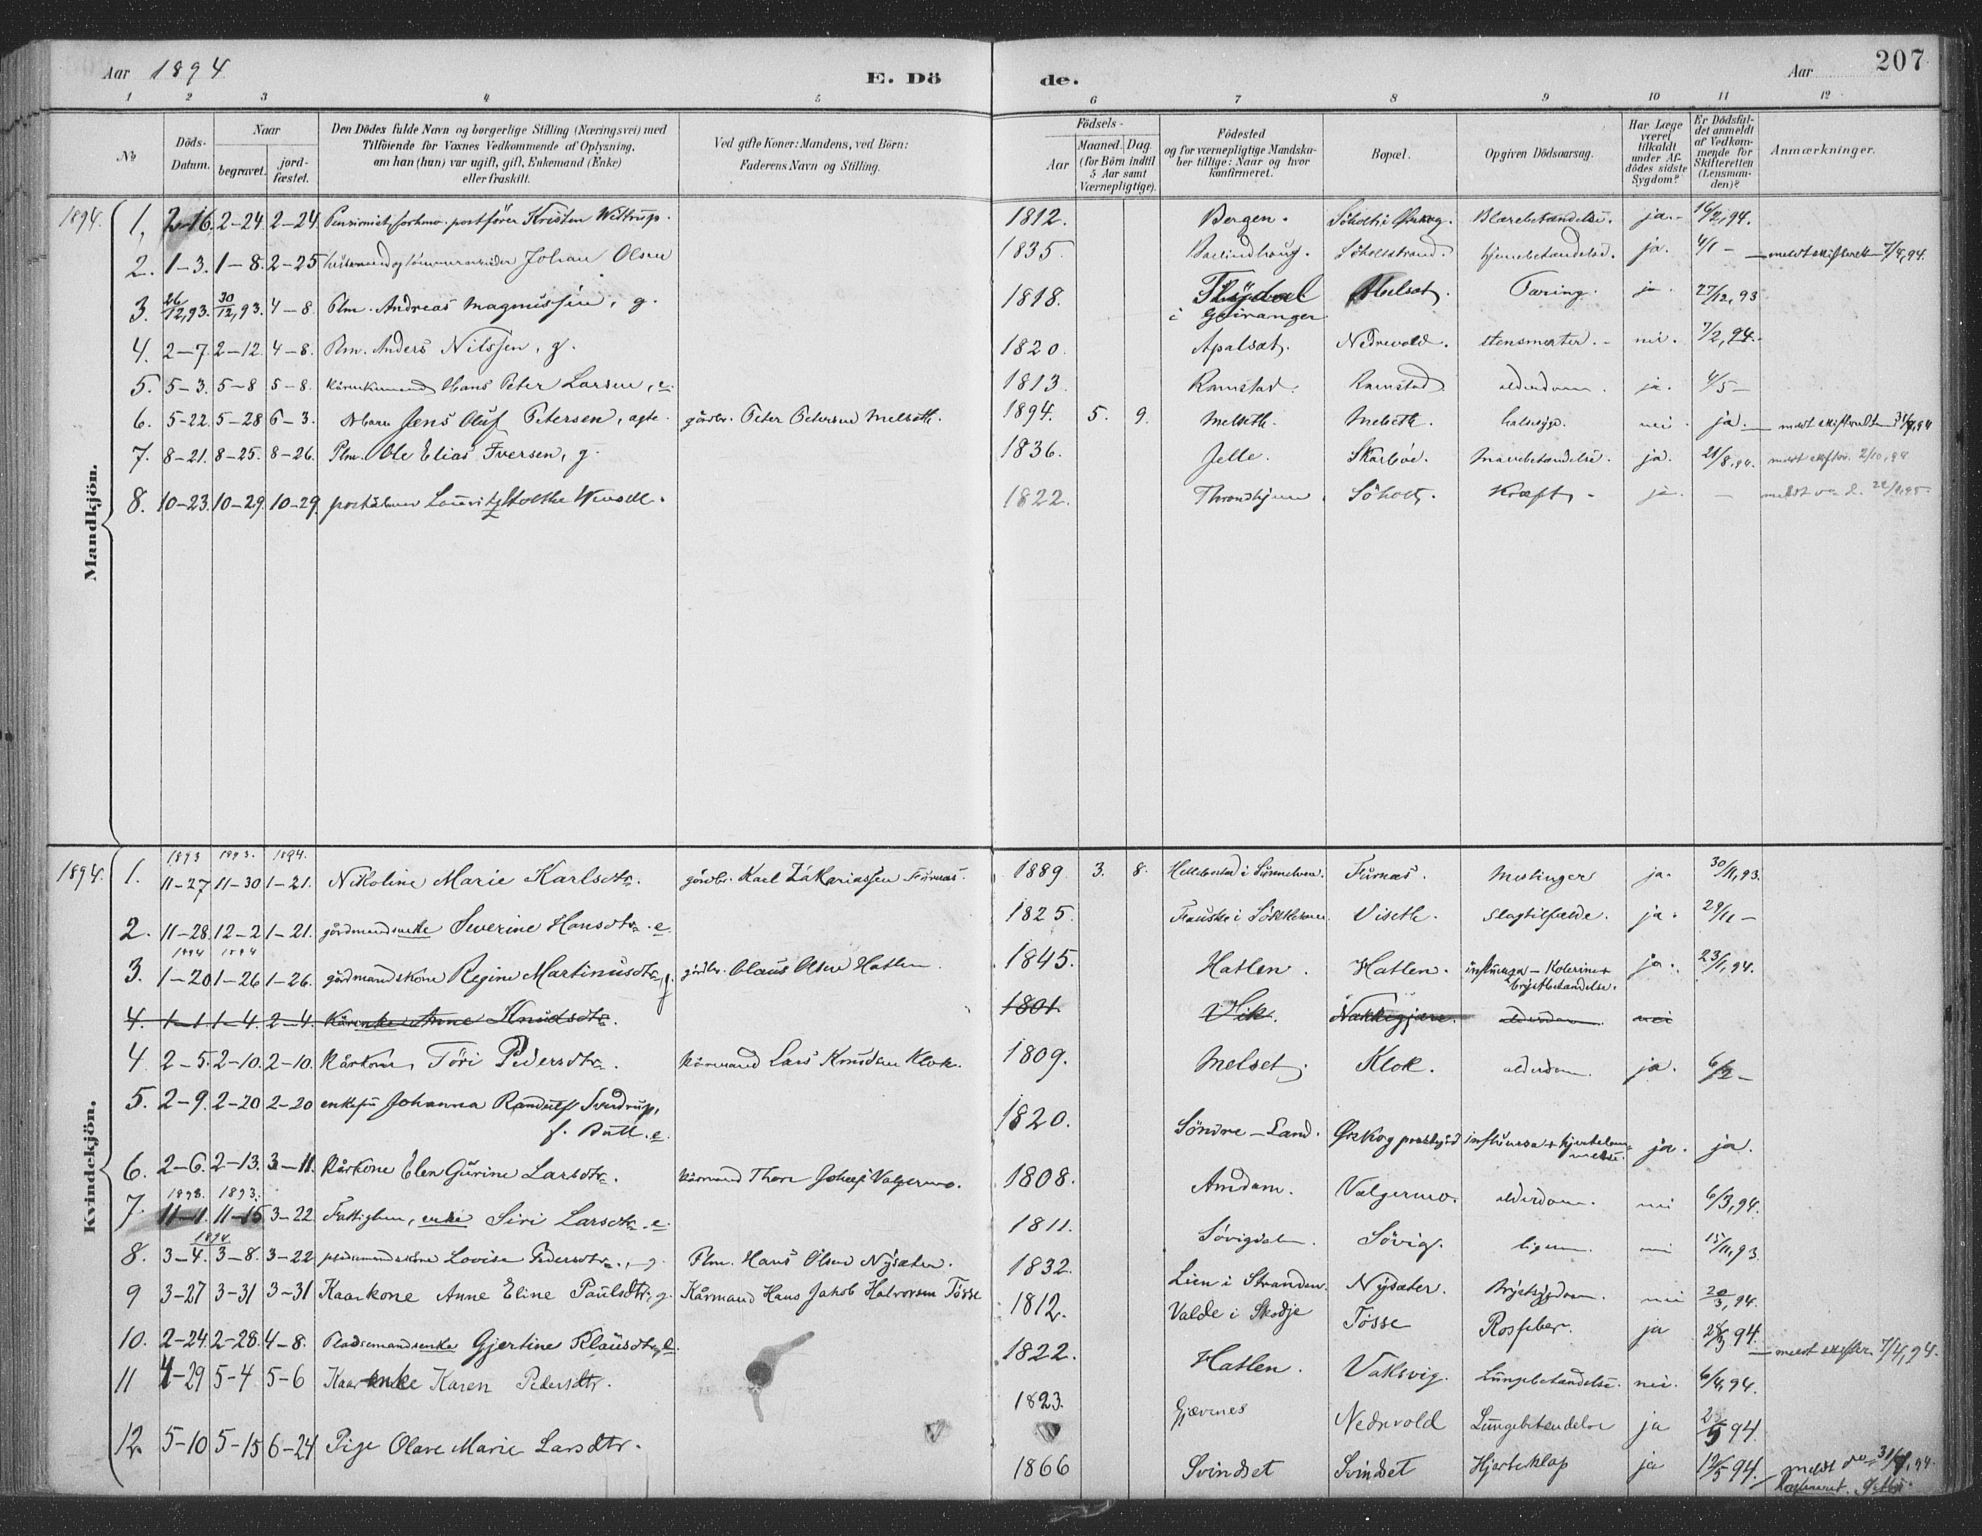 Aar 1894 E. Dö de. Aar 207
1 2 3 4 5 6 7 8 9 10 11 12
No
Döds-Datum.
Naar
begravet.
jord-fæstet.
Den Dödes fulde Navn og borgerlige Stilling (Næringsvei) med
Tilföiende for Voxnes Vedkommende af Oplysning,
om han (hun) var ugift, gift, Enkemand (Enke)
eller fraskilt.
Ved gifte Koner: Mandens, ved Börn:
Faderens Navn og Stilling.
Födsels-
Aar
Maaned. Dag.
(for Börn indtil
5 Aar samt
Værnepligtige).
Födested
og for værnepligtige Mandska-
ber tillige: Naar og hvor
konfirmeret.
Bopæl.
Opgiven Dödsaarsag.
Har Læge
været
tilkaldt
under Af-
dödes sidste
Sygdom?
Er Dödsfal-
det anmeldt
af Vedkom-
mende for
Skifteretten
(Lensman-
den)?
Anmærkninger.
Mandkjön.
1894. 1. 2-16. 2-24. 2-24. postförer Kristen Wittrup. 1812. Bergen. ja. 16/2, 94.
2. 1-3. 1-8. 2-25 Johan Olsen 1835 ja. 4/1 - meldt skifterett 7/4, 94.
3. 26/12, 93. 30/12, 93. 4-8. Plm. Andreas Magnussen, g. 1818. i Geiranger Melset. Tæring. ja. 27/12, 93
4. 2-7. 2-12. 4-8. Plm. Anders Nilssen, g. 1820. Apalset. Nedrevold. stensmerter. nei. 7/2, 94.
5. 5-3. 5-8 5-8. Hans Peter Larsen, e. 1813. Ramstad. Ramstad alderdom. ja. 4/5 -
6. 5-22. 5-28 6-3. Jens Oluf Petersen, ægte. gårdbr. Peter Petersen Melseth. 1894. 5. 9. Melseth. Melseth. halssyge. nei. ja.
7. 8-21. 8-25. 8-26. Plm. Ole Elias Iversen, g. 1836. Jelle. Skarbøe. ja. 21/8, 94. 2/10, 94
8. 10-23. 10-29. 10-29. 1822. Throndhjem Söholt. Kræft. ja. -
Kvindekjön.
1894. 1. 1893 11-27 1893. 11-30 1894. 1-21. Nikoline Marie Karlsdtr. gårdbr. Karl Zakariassen Fürnæs. 1889. 3. 8. Fürnæs. ja. 30/11, 93.
2. 11-28. 12-2 1-21. gårdmandsenke Severine Hansdtr. e. 1825. Viseth. slagtilfælde. ja. 29/11 -
3. 1894 1-20. 1894 1-26. 1-26. gårdmandskone Regine Martinusdtr., g. gårdbr. Olaus Olsen Hatlen. 1845. Hatlen. Hatlen. influenza - Kolerine + brystbetændelse. ja. 23/1, 94.
4. 1-1 1-4 2-4. Kårenke Anne Knudsdtr. 1801. Vik. alderdom. nei
4 2-5. 2-10. 2-10. Kårkone, Töri Pedersdtr. kårmand Lars Knudsen Klok. 1809. Melset. Klok. alderdom. ja. 6/2 -
5. 2-9. 2-20 2-20 enkefru Johanna Randulf Sverdrup,
f. Bull. e. 1820. Söndre-Land. Ørskog prestgård influenza + ja. ja.
6. 2-6. 2-13. 3-11. Kårkone Elen Gürine Larsdtr. kårmand Valgermo. 1808. Amdam. Valgermo. alderdom. nei 6/3, 94.
7. 1893. 11-1. 1893. 11-15 3-22. enke Siri Larsdtr. e. 1811. Sövigdalen. Sövig. nei 15/11, 93.
8. 1894 3-4. 3-8. 3-22 pladsmandskone Lovise Pedersdtr., g. Plm. Hans Olsen Nysæter. 1832. Lien i Stranden. Nysæter. Brystsygdom. nei 20/3, 94.
9 3-27 3-31 3-31 Kaarkone Anne Eline Paulsdtr, g. Kårmand Hans Jakob Halvorsen Tösse 1812. Valde i Skodje Tösse Rosfeber. ja 28/3 94.
10. 2-24. 2-28. 4-8. Pladsemandsenke Gjertine Klausdtr, e. 1822. Hatlen. Vaksvig. Lungebetændelse. nei. 6/4, 94. meldt skifter. 7/4, 94.
11 4-29 5-4 5-6 Kaarenke Karen Pedersdtr. 1823. Gjævenes Nedrevold Lungebetændelse ja 2/5 94.
12. 5-10 5-15 6-24 Pige Olave Marie Larsdtr. 1866 Svindset Svindset Hjerteklap ja 12/5 94.